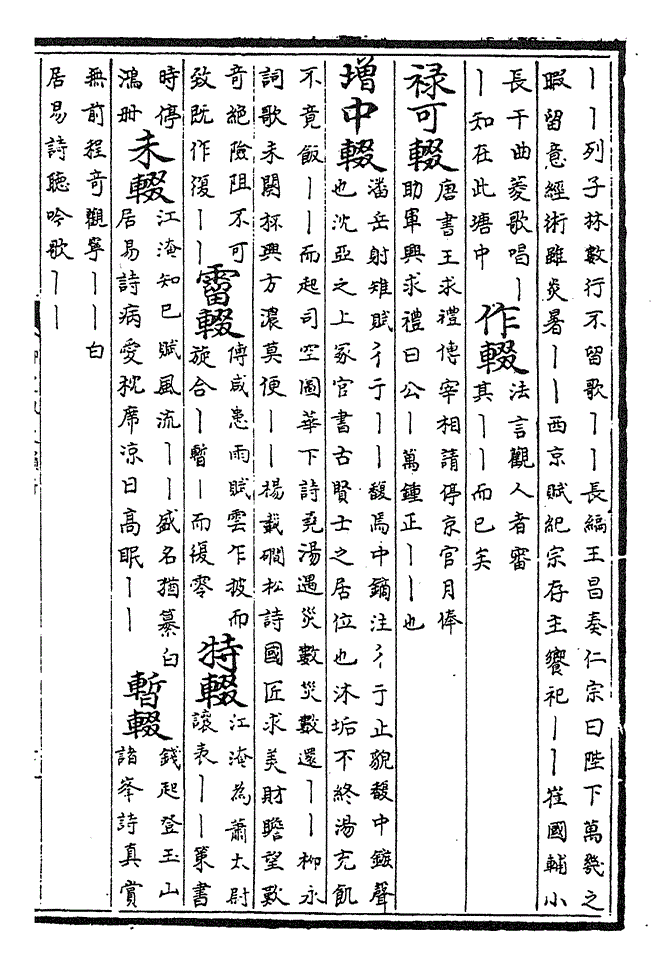 丨丨列子林數行不留歌丨丨長編王昌奏仁宗曰陛下萬幾之
暇留意經術雖炎暑丨丨西京賦紀宗存主饗祀丨丨崔國輔小
長干曲菱歌唱丨
丨知在此塘中
作輟
法言觀人者審
其丨丨而已矣
祿可輟
唐書王求禮傳宰相請停京官月俸
助軍興求禮曰公丨萬鍾正丨丨也
增中輟
潘岳射雉賦彳亍丨丨馥焉中鏑注彳亍止貌馥中鏃聲
也沈亞之上冢官書古賢士之居位也沐垢不終湯充飢
不竟飯丨丨而起司空圖華下詩堯湯遇災數災數還丨丨柳永
詞歌未闋杯興方濃莫便丨丨楊載磵松詩國匠求美財瞻望歎
奇絕險阻不可
致既作復丨丨
霤輟
傅咸患雨賦雲乍披而
旋合丨暫丨而復零
特輟
江淹為蕭太尉
讓表丨丨策書
時停
鴻冊
未輟
江淹知已賦風流丨丨盛名猶纂白
居易詩病愛枕席涼日高眠丨丨
暫輟
錢起登玉山
諸峯詩真賞
無前程奇觀寧丨丨白
居易詩聽吟歌丨丨